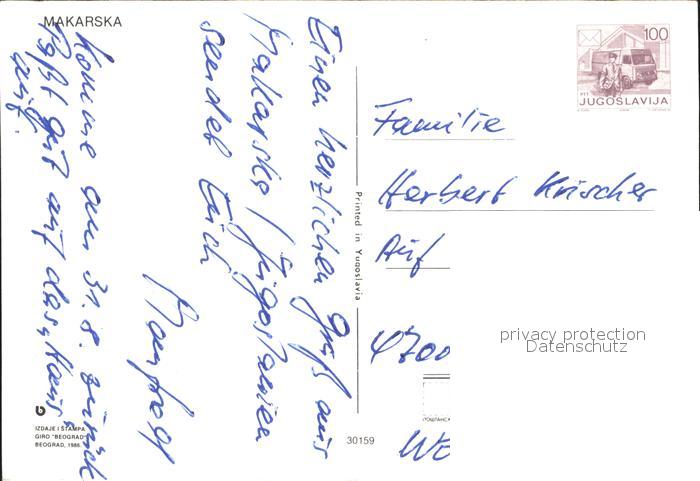 MAKARSKA
Einen herzlichen Gruß aus
Makarska / Jugoslawien
sendet Euch
Manfred
Komme am 31. 8. zurück
Paßt gut auf das "Haus"
auf.
IZDAJE I ŠTAMPA
GIRO "BEOGRAD"
BEOGRAD, 1986.
Printed in Yugoslavia
30159
100
PTT
JUGOSLAVIJA
Familie
Herbert Krischer
Auf
4700
privacy protection
Datenschutz